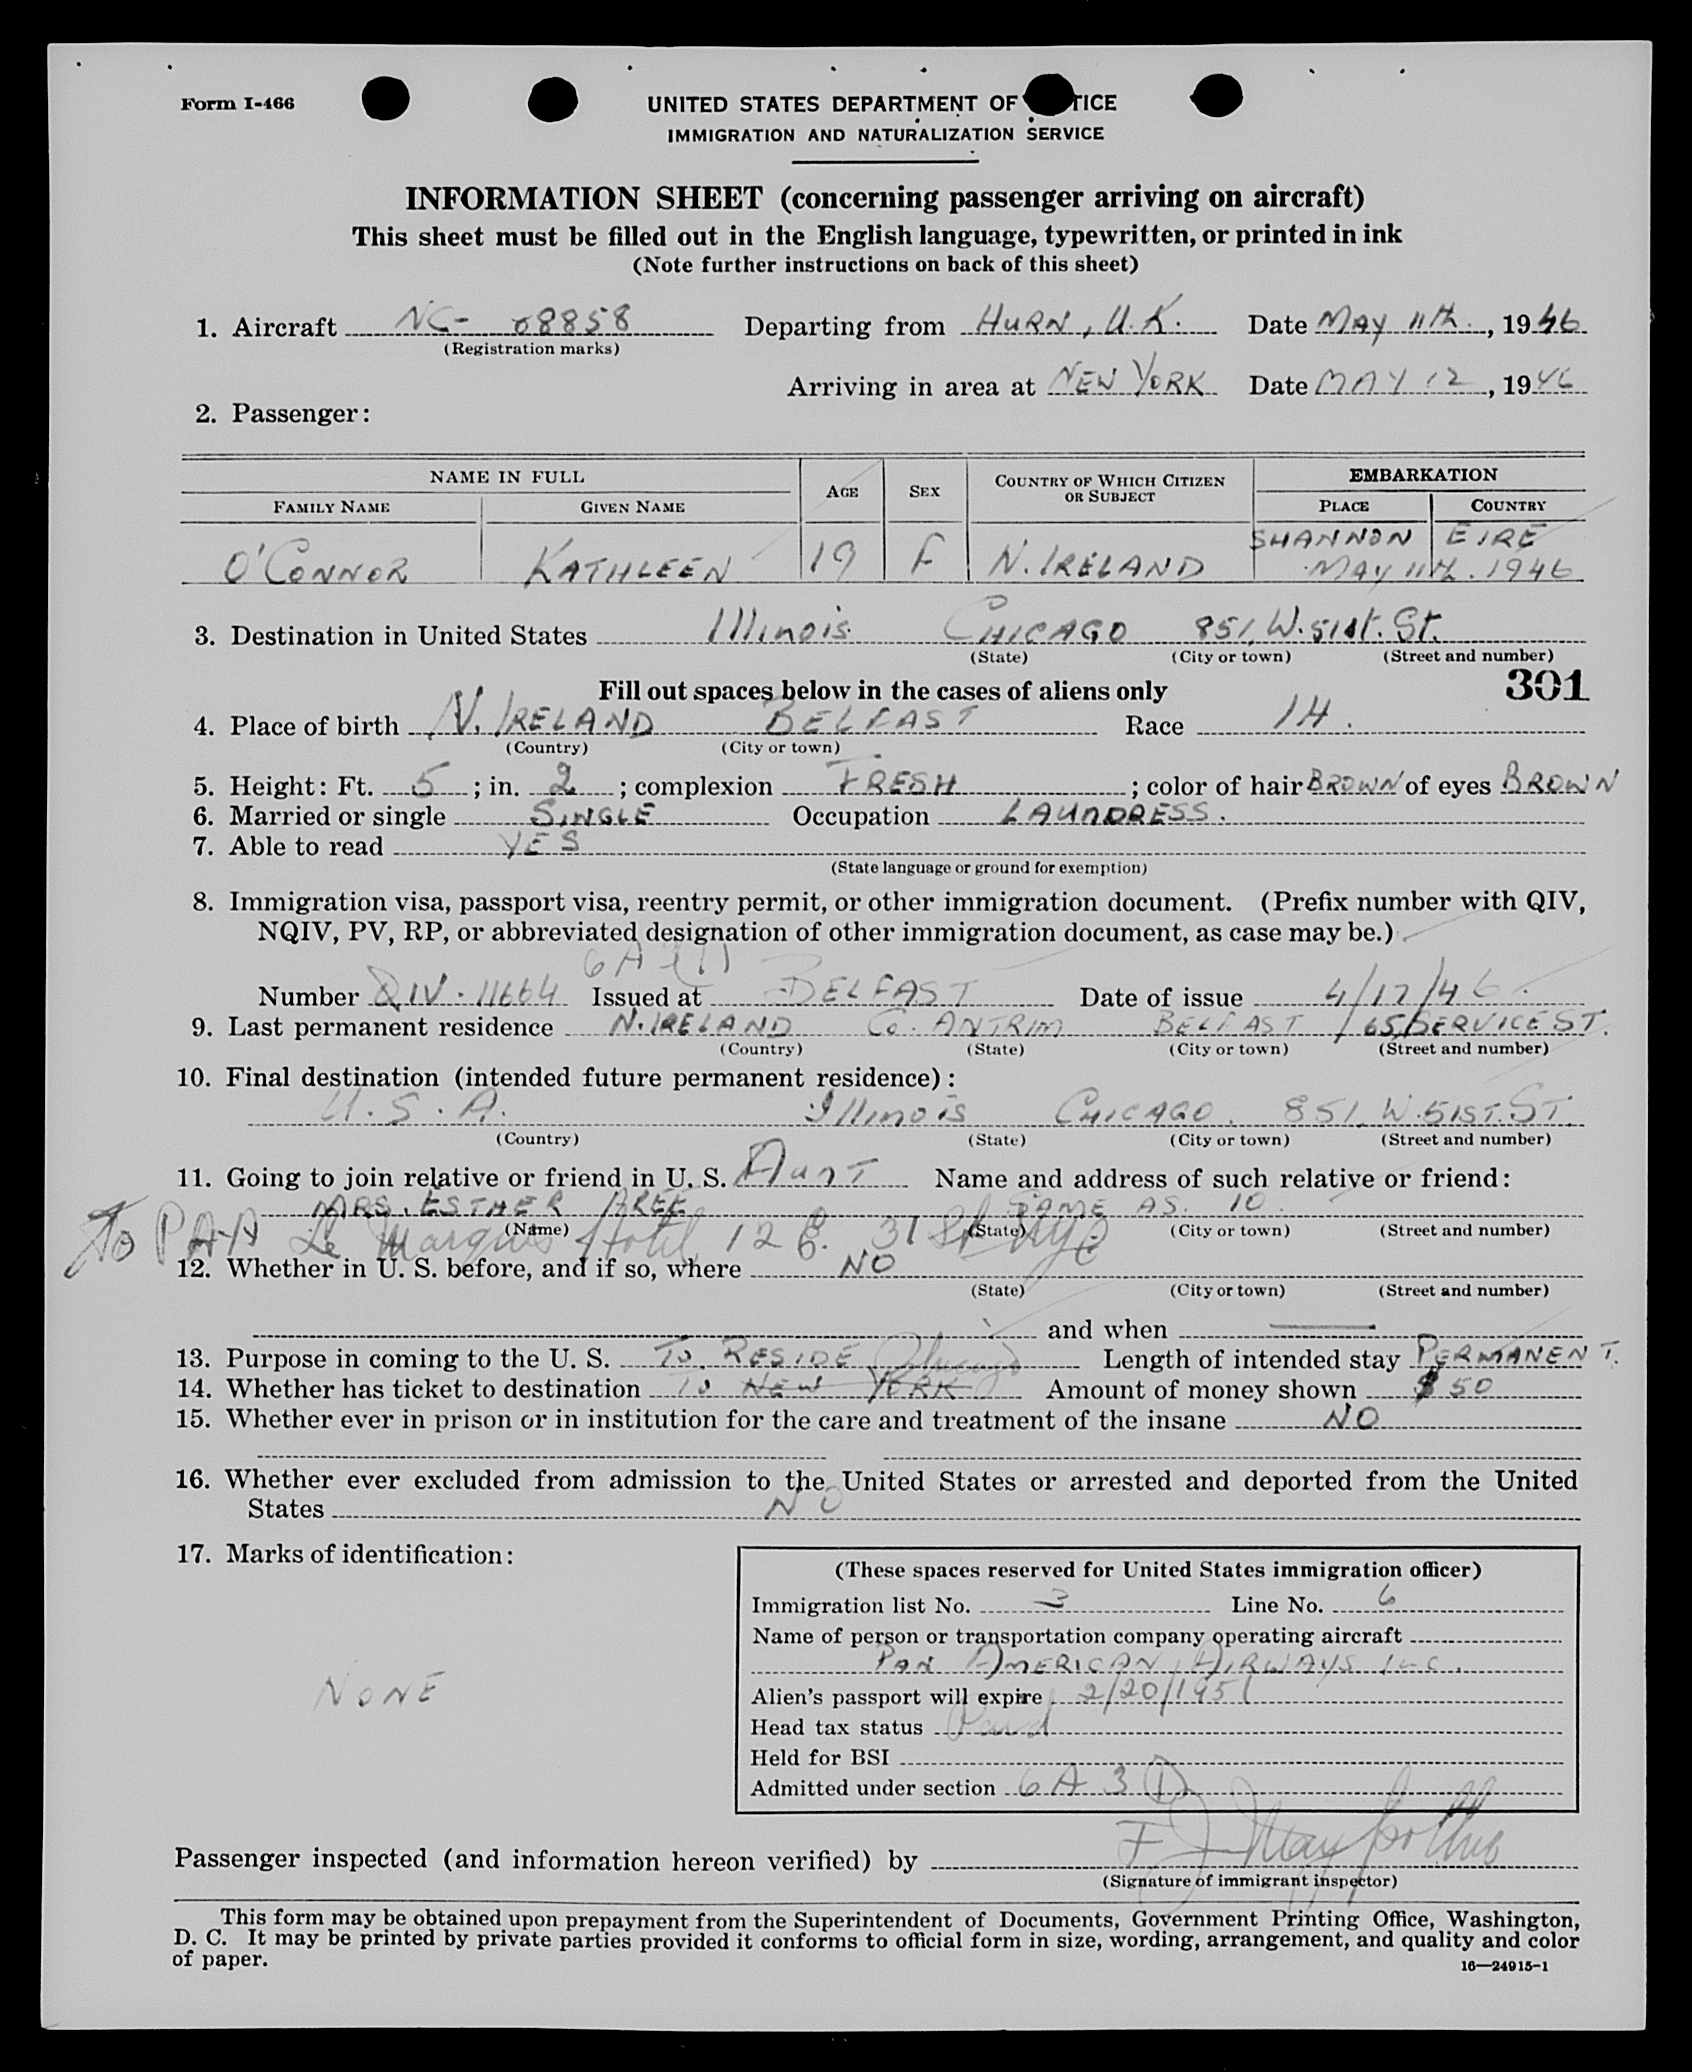 Form I-466
UNITED STATES DEPARTMENT OF TICE
IMMIGRATION AND NATURALIZATION SERVICE
INFORMATION SHEET (concerning passenger arriving on aircraft)
This sheet must be filled out in the English language, typewritten, or printed in ink
(Note further instructions on back of this sheet)
1. Aircraft NC- 08858 Departing from HURN, U.K. Date MAY 11th, 1946
(Registration marks)
Arriving in area at NEW YORK Date MAY 12, 1946
2. Passenger:
NAME IN FULL AGE SEX COUNTRY OF WHICH CITIZEN OR SUBJECT EMBARKATION
FAMILY NAME GIVEN NAME PLACE COUNTRY
SHANNON EIRE
O'CONNOR KATHLEEN 19 F N. IRELAND MAY 11th. 1946
3. Destination in United States Illinois CHICAGO 851, W. 51st. St.
(State) (City or town) (Street and number)
Fill out spaces below in the cases of aliens only 301
4. Place of birth N. IRELAND BELFAST Race 14.
(Country) (City or town)
5. Height: Ft. 5; in. 2; complexion FRESH; color of hair BROWN of eyes BROWN
6. Married or single SINGLE Occupation LAUNDRESS.
7. Able to read YES
(State language or ground for exemption)
8. Immigration visa, passport visa, reentry permit, or other immigration document. (Prefix number with QIV,
NQIV, PV, RP, or abbreviated designation of other immigration document, as case may be.)
6A
Number QIV-11664 Issued at BELFAST Date of issue 4/17/46.
9. Last permanent residence N. IRELAND Co. ANTRIM BELFAST 65, SERVICE ST.
(Country) (State) (City or town) (Street and number)
10. Final destination (intended future permanent residence):
U.S.A. Illinois CHICAGO. 851, W. 51ST. ST.
(Country) (State) (City or town) (Street and number)
11. Going to join relative or friend in U. S. AunT Name and address of such relative or friend:
MRS. ESTHER AREE SAME AS. 10.
(Name) (State) (City or town) (Street and number)
To PAA Le Marquis Hotel 12 E. 31 St NYC
12. Whether in U. S. before, and if so, where NO
(State) (City or town) (Street and number)
and when —
13. Purpose in coming to the U. S. To RESIDE Length of intended stay PERMANENT.
14. Whether has ticket to destination To NEW YORK Chicago Amount of money shown $50
15. Whether ever in prison or in institution for the care and treatment of the insane NO
16. Whether ever excluded from admission to the United States or arrested and deported from the United
States NO
17. Marks of identification:
NONE
(These spaces reserved for United States immigration officer)
Immigration list No. 3 Line No. 6
Name of person or transportation company operating aircraft
PAN AMERICAN AIRWAYS INC.
Alien's passport will expire 2/20/1951
Head tax status Paid
Held for BSI
Admitted under section 6A 3 (1)
Passenger inspected (and information hereon verified) by
(Signature of immigrant inspector)
This form may be obtained upon prepayment from the Superintendent of Documents, Government Printing Office, Washington,
D. C. It may be printed by private parties provided it conforms to official form in size, wording, arrangement, and quality and color
of paper.
16—24915-1